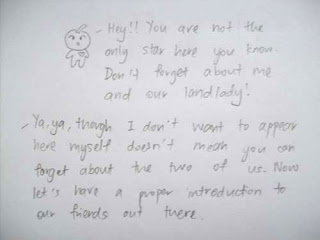 - Hey!! You are not the
only star here you know.
Don't forget about me
and our landlady!
- Ya, ya, though I don't want to appear
here myself doesn't mean you can
forget about the two of us. Now
let's have a proper introduction to
our friends out there.